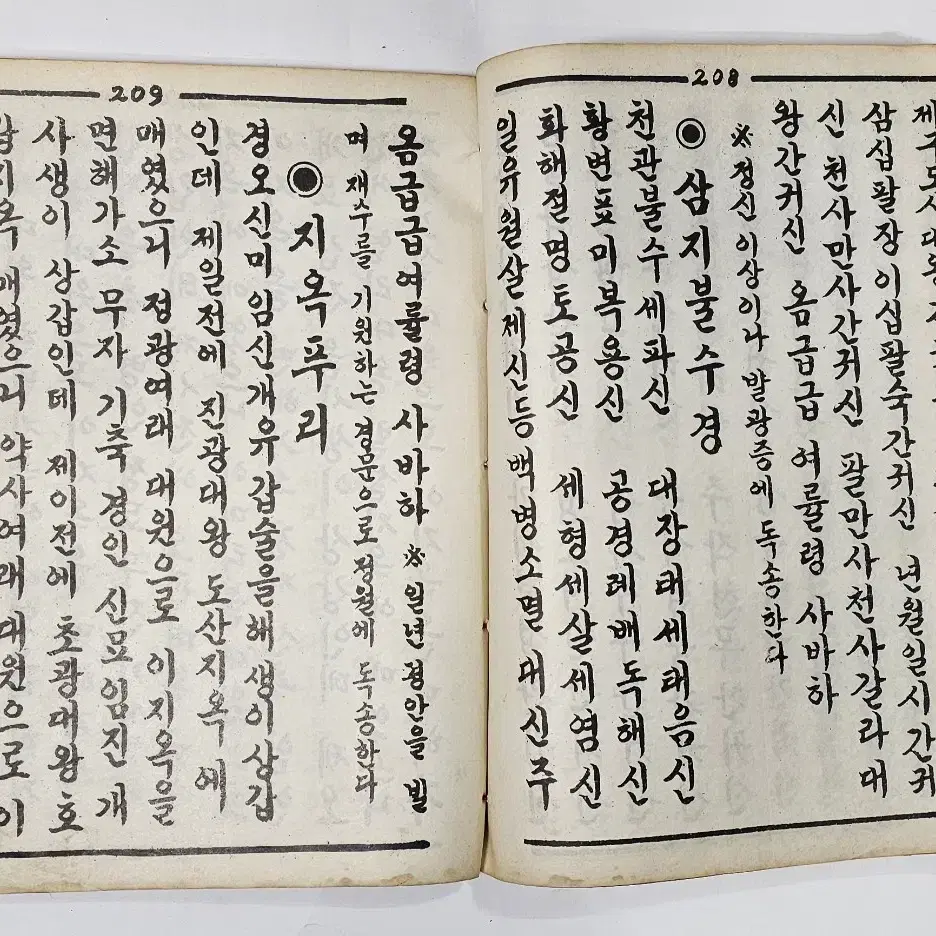 208
제구도사대왕
삼십팔장이십팔숙간귀신 년월일시간귀
신 천사만사간귀신 팔만사천사갈라대
왕간귀신 옴급급 여률령 사바하
※정신이상이나 발광증에 독송한다
◉ 삼지불수경
천관불수세파신 대장태세태음신
황번표미복용신 공경례배독해신
화해절명토공신 세형세살세염신
일유월살제신등 백병소멸대신주
209
옴급급여률령 사바하 ※일년경안을 빌
며 재수를 기원하는 경문으로 정월에 독송한다
◉ 지옥푸리
경오신미임신개유갑술을해생이상갑
인데 제일전에 진광대왕 도산지옥에
매였으니 정광여래 대원으로 이지옥을
면해가소 무자기축경인신묘임진개
사생이 상갑인데 제이전에 초광대왕호
탕지옥 매였으니 약사여래대원으로이